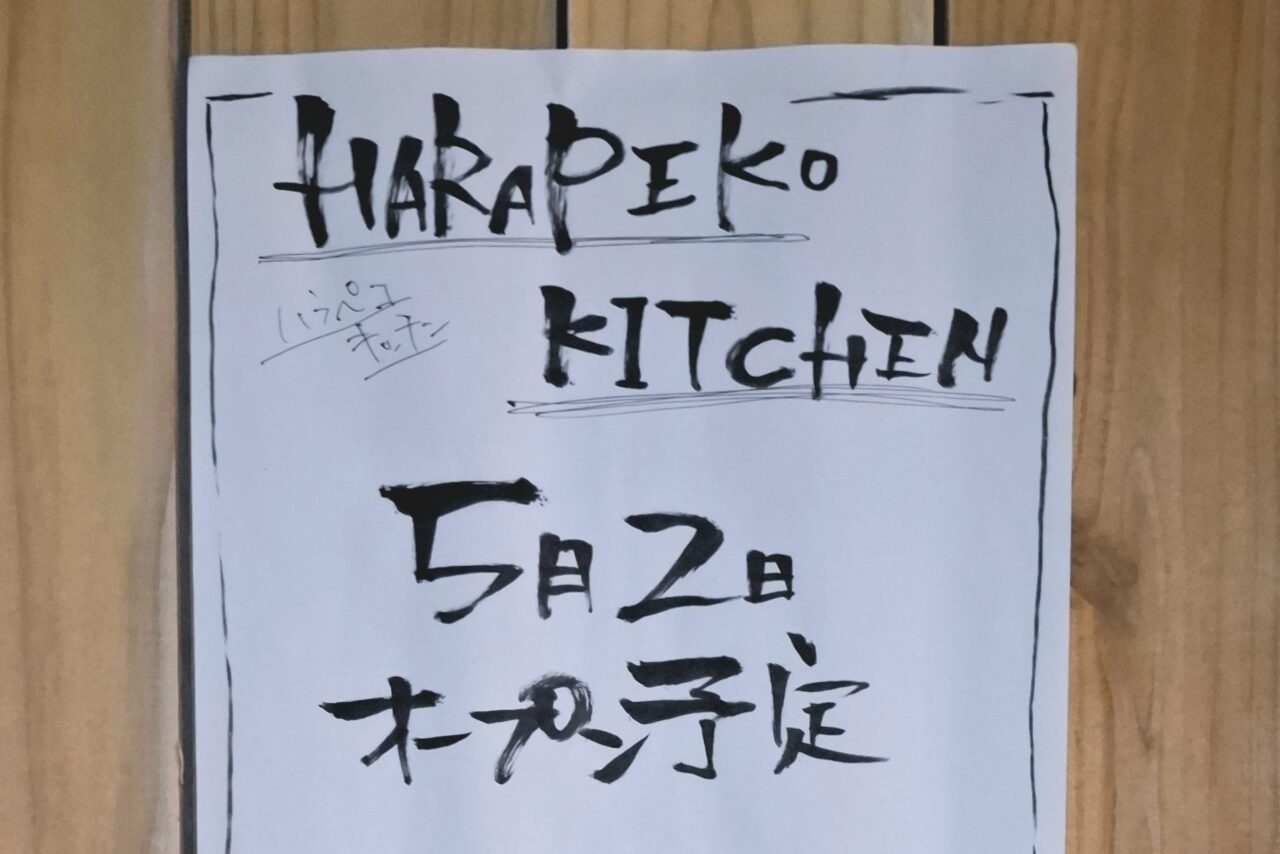 HARAPEKO
ハラペコ
キッチン
KITCHEN
5月2日
オープン予定